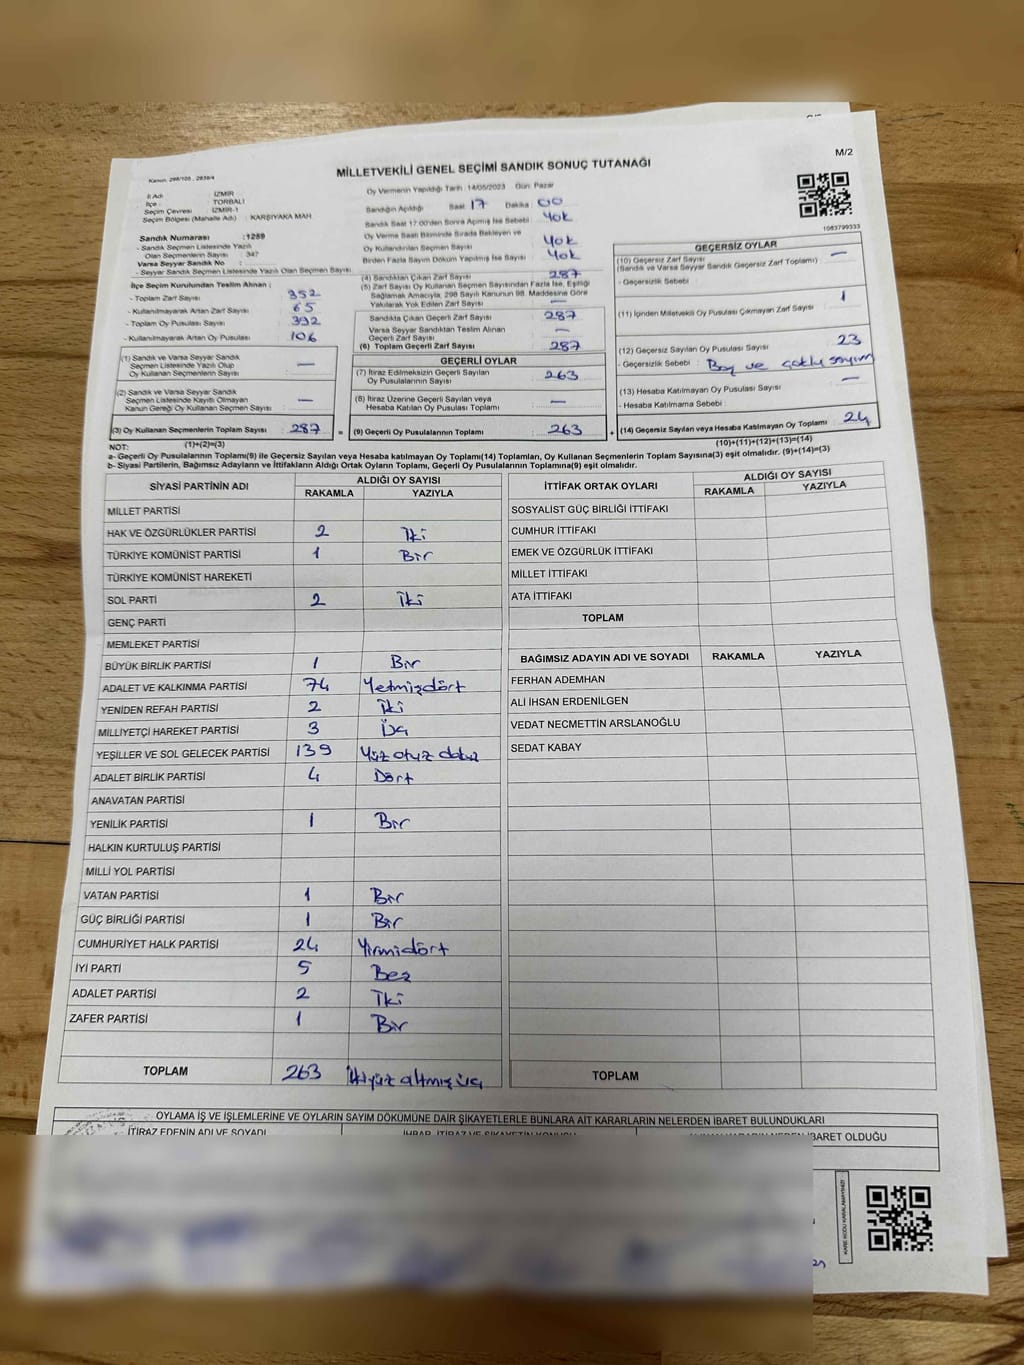 M/2
MİLLETVEKİLİ GENEL SEÇİMİ SANDIK SONUÇ TUTANAĞI
Kanun: 298/105 , 2839/4
İl Adı : İZMİR
İlçe : TORBALI
Seçim Çevresi : İZMİR-1
Seçim Bölgesi (Mahalle Adı) : KARŞIYAKA MAH
Sandık Numarası :1259
- Sandık Seçmen Listesinde Yazılı
Olan Seçmenlerin Sayısı : 347
Varsa Seyyar Sandık No :
- Seyyar Sandık Seçmen Listesinde Yazılı Olan Seçmen Sayısı
İlçe Seçim Kurulundan Teslim Alınan ;
- Toplam Zarf Sayısı : 352
- Kullanılmayarak Artan Zarf Sayısı : 65
- Toplam Oy Pusulası Sayısı : 392
- Kullanılmayarak Artan Oy Pusulası : 106
(1) Sandık ve Varsa Seyyar Sandık
Seçmen Listesinde Yazılı Olup
Oy Kullanan Seçmenlerin Sayısı : —
(2) Sandık ve Varsa Seyyar Sandık
Seçmen Listesinde Kayıtlı Olmayan
Kanun Gereği Oy Kullanan Seçmen Sayısı : —
(3) Oy Kullanan Seçmenlerin Toplam Sayısı : 287 =
Oy Vermenin Yapıldığı Tarih :14/05/2023 Gün: Pazar
Sandığın Açıldığı Saat 17 Dakika 00
Sandık Saat 17.00'den Sonra Açılmış İse Sebebi : Yok
Oy Verme Saati Bitiminde Sırada Bekleyen ve
Oy Kullandırılan Seçmen Sayısı : Yok
Birden Fazla Sayım Döküm Yapılmış İse Sayısı : Yok
(4) Sandıktan Çıkan Zarf Sayısı : 287
(5) Zarf Sayısı Oy Kullanan Seçmen Sayısından Fazla İse, Eşitliği
Sağlamak Amacıyla, 298 Sayılı Kanunun 98. Maddesine Göre
Yakılarak Yok Edilen Zarf Sayısı : —
Sandıkta Çıkan Geçerli Zarf Sayısı : 287
Varsa Seyyar Sandıktan Teslim Alınan
Geçerli Zarf Sayısı : —
(6) Toplam Geçerli Zarf Sayısı : 287
GEÇERLİ OYLAR
(7) İtiraz Edilmeksizin Geçerli Sayılan
Oy Pusulalarının Sayısı : 263
(8) İtiraz Üzerine Geçerli Sayılan veya
Hesaba Katılan Oy Pusulası Toplamı : —
(9) Geçerli Oy Pusulalarının Toplamı : 263 +
1083799333
GEÇERSİZ OYLAR
(10) Geçersiz Zarf Sayısı : —
(Sandık ve Varsa Seyyar Sandık Geçersiz Zarf Toplamı)
- Geçersizlik Sebebi :
(11) İçinden Milletvekili Oy Pusulası Çıkmayan Zarf Sayısı : 1
(12) Geçersiz Sayılan Oy Pusulası Sayısı : 23
- Geçersizlik Sebebi : Boş ve çoklu sayım
(13) Hesaba Katılmayan Oy Pusulası Sayısı : —
- Hesaba Katılmama Sebebi :
(14) Geçersiz Sayılan veya Hesaba Katılmayan Oy Toplamı : 24
NOT: (1)+(2)=(3) (10)+(11)+(12)+(13)=(14)
a- Geçerli Oy Pusulalarının Toplamı(9) ile Geçersiz Sayılan veya Hesaba Katılmayan Oy Toplamı(14) Toplamları, Oy Kullanan Seçmenlerin Toplam Sayısına(3) eşit olmalıdır. (9)+(14)=(3)
b- Siyasi Partilerin, Bağımsız Adayların ve İttifakların Aldığı Ortak Oyların Toplamı, Geçerli Oy Pusulalarının Toplamına(9) eşit olmalıdır.
SİYASİ PARTİNİN ADI ALDIĞI OY SAYISI
RAKAMLA YAZIYLA
MİLLET PARTİSİ
HAK VE ÖZGÜRLÜKLER PARTİSİ 2 İki
TÜRKİYE KOMÜNİST PARTİSİ 1 Bir
TÜRKİYE KOMÜNİST HAREKETİ
SOL PARTİ 2 İki
GENÇ PARTİ
MEMLEKET PARTİSİ
BÜYÜK BİRLİK PARTİSİ 1 Bir
ADALET VE KALKINMA PARTİSİ 74 Yetmişdört
YENİDEN REFAH PARTİSİ 2 İki
MİLLİYETÇİ HAREKET PARTİSİ 3 Üç
YEŞİLLER VE SOL GELECEK PARTİSİ 139 Yüz otuz dokuz
ADALET BİRLİK PARTİSİ 4 Dört
ANAVATAN PARTİSİ
YENİLİK PARTİSİ 1 Bir
HALKIN KURTULUŞ PARTİSİ
MİLLİ YOL PARTİSİ
VATAN PARTİSİ 1 Bir
GÜÇ BİRLİĞİ PARTİSİ 1 Bir
CUMHURİYET HALK PARTİSİ 24 Yirmidört
İYİ PARTİ 5 Beş
ADALET PARTİSİ 2 İki
ZAFER PARTİSİ 1 Bir
TOPLAM 263 İkiyüz altmış üç
İTTİFAK ORTAK OYLARI ALDIĞI OY SAYISI
RAKAMLA YAZIYLA
SOSYALİST GÜÇ BİRLİĞİ İTTİFAKI
CUMHUR İTTİFAKI
EMEK VE ÖZGÜRLÜK İTTİFAKI
MİLLET İTTİFAKI
ATA İTTİFAKI
TOPLAM
BAĞIMSIZ ADAYIN ADI VE SOYADI RAKAMLA YAZIYLA
FERHAN ADEMHAN
ALİ İHSAN ERDENİLGEN
VEDAT NECMETTİN ARSLANOĞLU
SEDAT KABAY
TOPLAM
OYLAMA İŞ VE İŞLEMLERİNE VE OYLARIN SAYIM DÖKÜMÜNE DAİR ŞİKAYETLERLE BUNLARA AİT KARARLARIN NELERDEN İBARET BULUNDUKLARI
İTİRAZ EDENİN ADI VE SOYADI İHBAR, İTİRAZ VE ŞİKAYETİN KONUSU İBARET OLDUĞU
KARE KODU KARALAMAYINIZ!